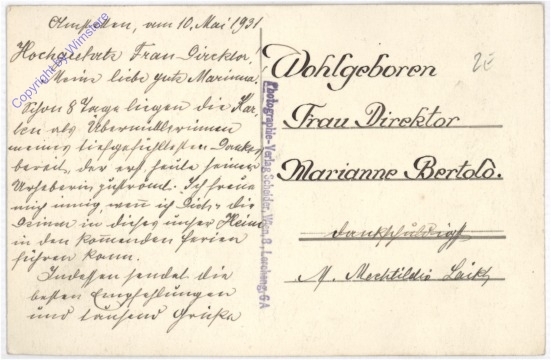 Amstetten, am 10. Mai 1931
Hochgeehrte Frau Direktor!
Meine liebe gute Marianna.
Schon 8 Tage liegen die Kar-
ten als Übermittlerinnen
meines tiefgefühltesten Dankes
bereit, der erst heute seiner
Urheberin zuströmt. Ich freue
mich innig, wenn ich Dich, die
in dieses unser Heim
in den kommenden Ferien
führen kann.
Indessen sendet die
besten Empfehlungen
und tausend Grüße
Copyright by Wimstore
Photographie-Verlag Wien, 8., Lercheng. 6A
2E
Wohlgeboren
Frau Direktor
Marianne Bertolò.
dankschuldigst
M. Mechtildis